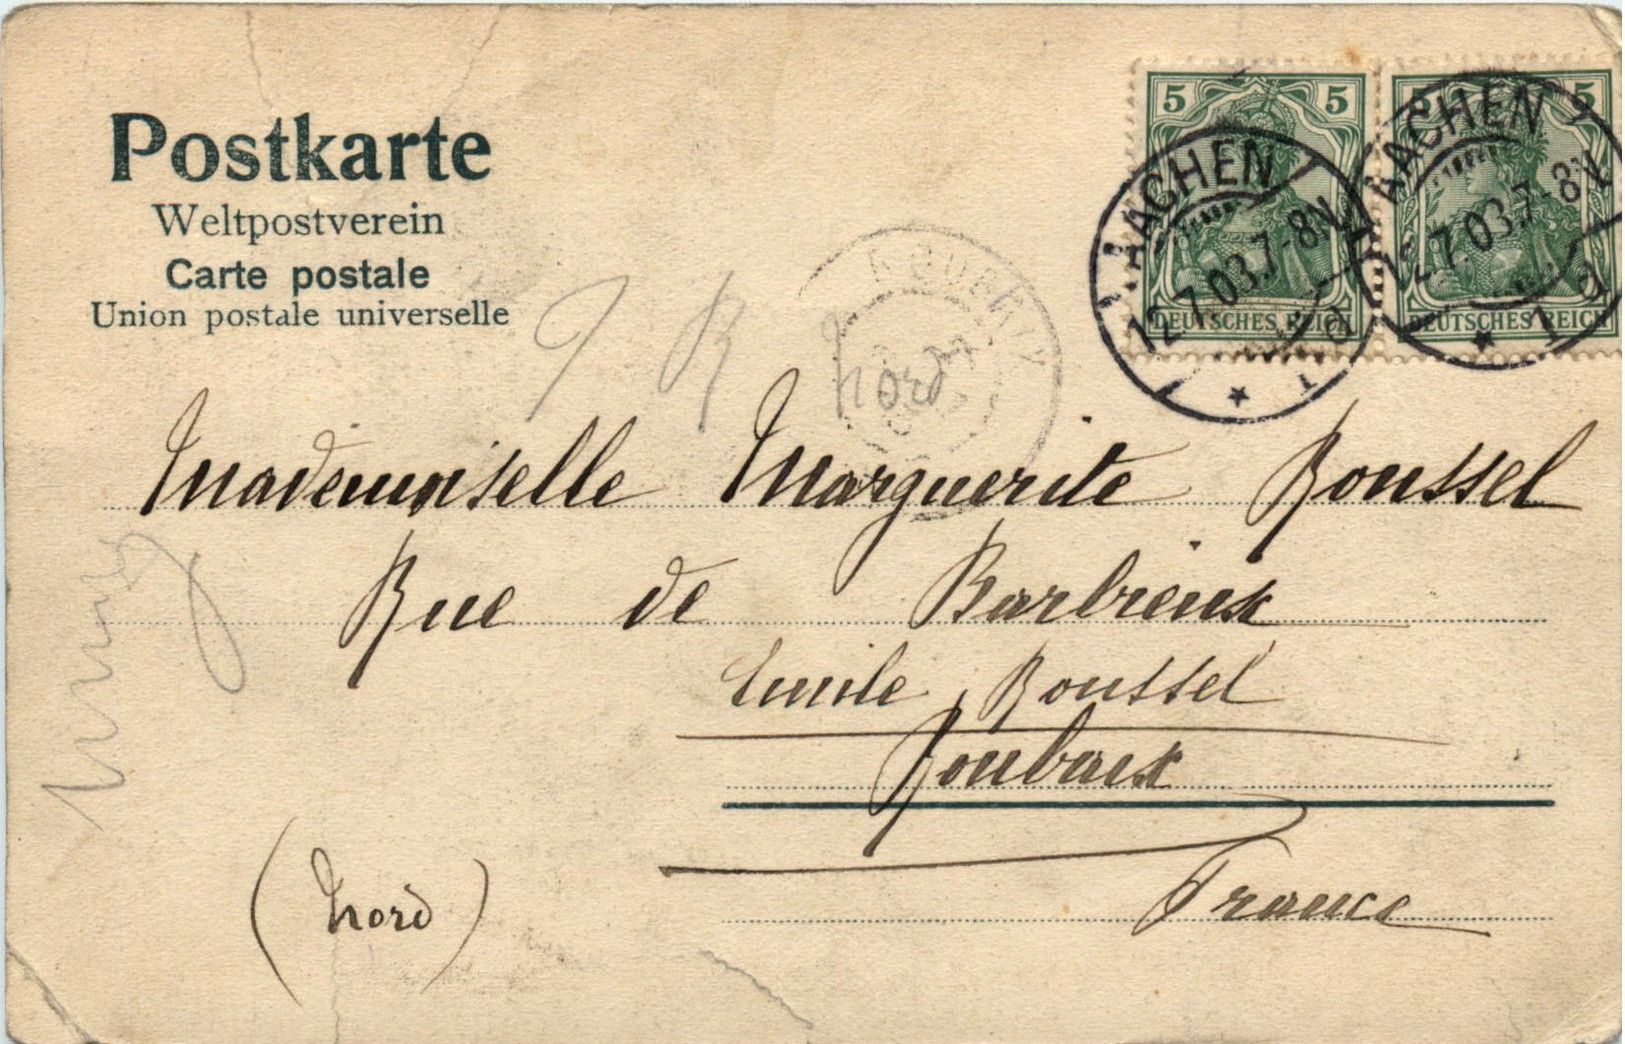 Postkarte
Weltpostverein
Carte postale
Union postale universelle
5 5
DEUTSCHES REICH
5 5
DEUTSCHES REICH
AACHEN
12.7.03.7-8N.
* 1 d
AACHEN
12.7.03.7-8N.
* 1 d
Nord
Mademoiselle Marguerite Roussel
Rue de Barbieux
Emile Roussel
Roubaix
(Nord)
France